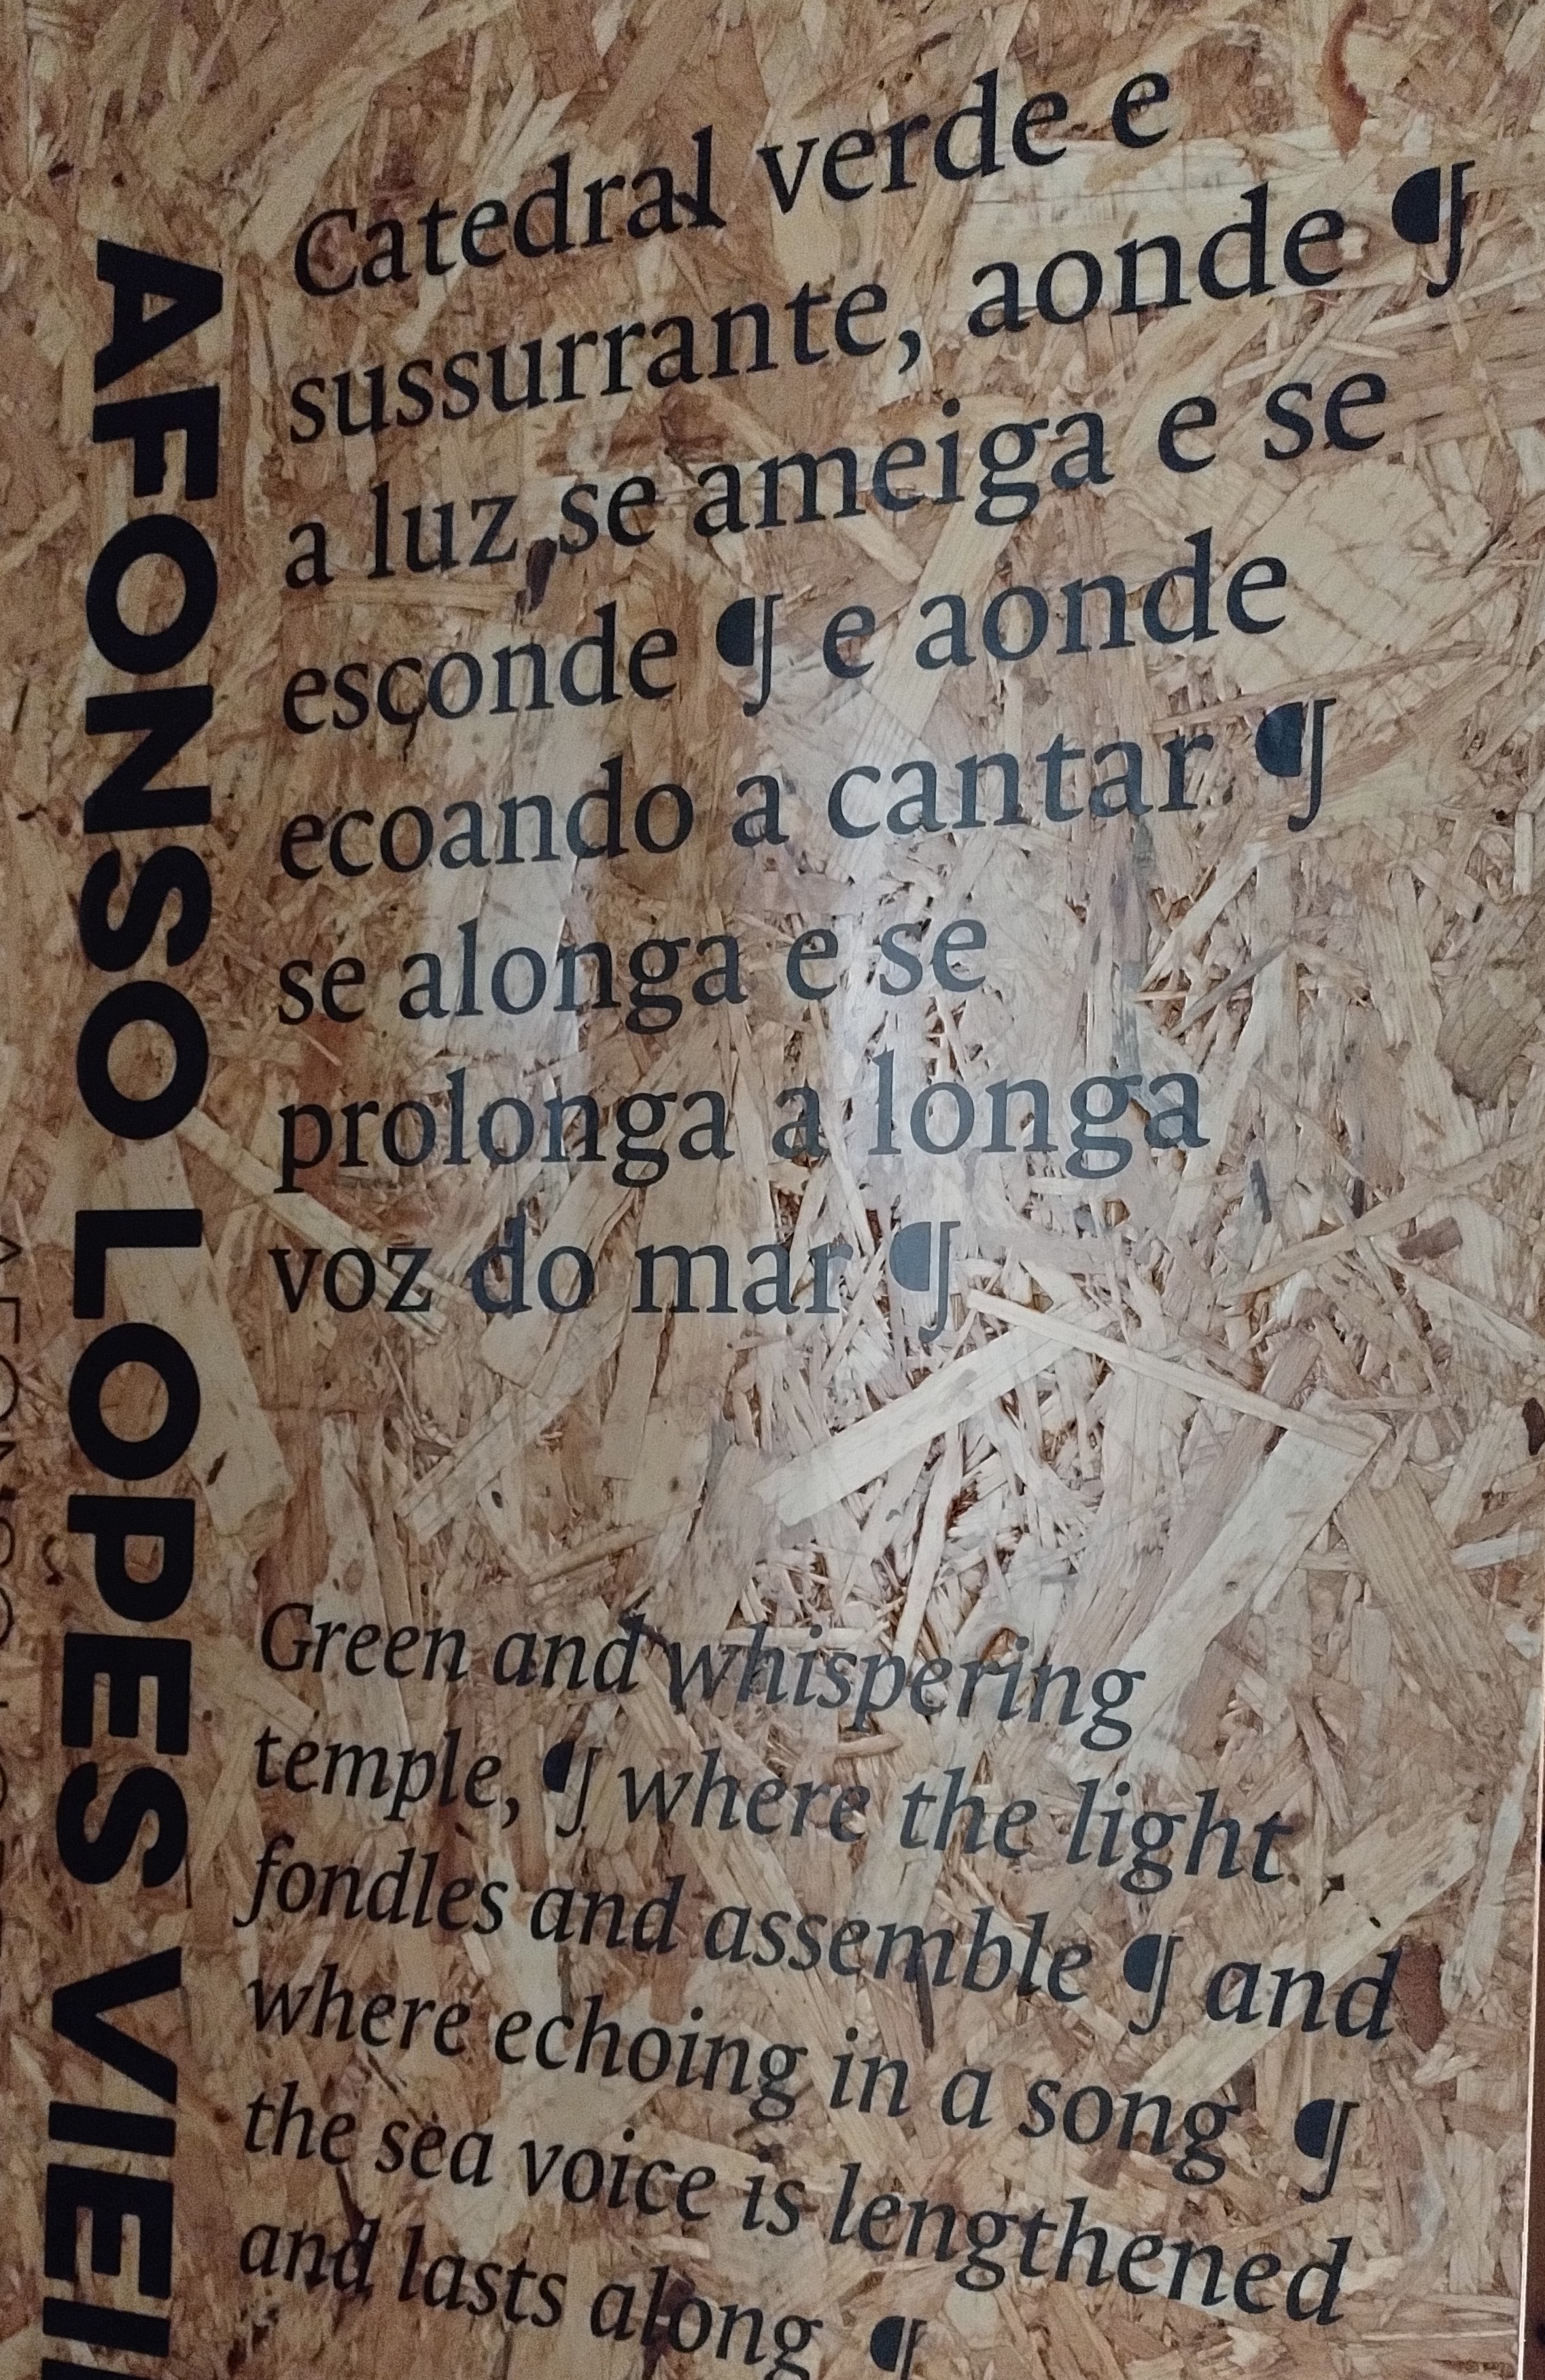 AFONSO LOPES VIEI
Catedral verde e
sussurrante, aonde ¶
a luz se ameiga e se
esconde ¶ e aonde
ecoando a cantar ¶
se alonga e se
prolonga a longa
voz do mar ¶
Green and whispering
temple, ¶ where the light
fondles and assemble ¶ and
where echoing in a song ¶
the sea voice is lengthened
and lasts along ¶